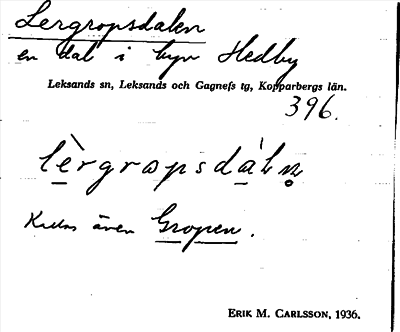 Lergropsdalen
en dal i byn Hedby
Leksands sn, Leksands och Gagnefs tg, Kopparbergs län.
396.
lèrgrɷpsdàln̥
Kallas även Gropen.
ERIK M. CARLSSON, 1936.